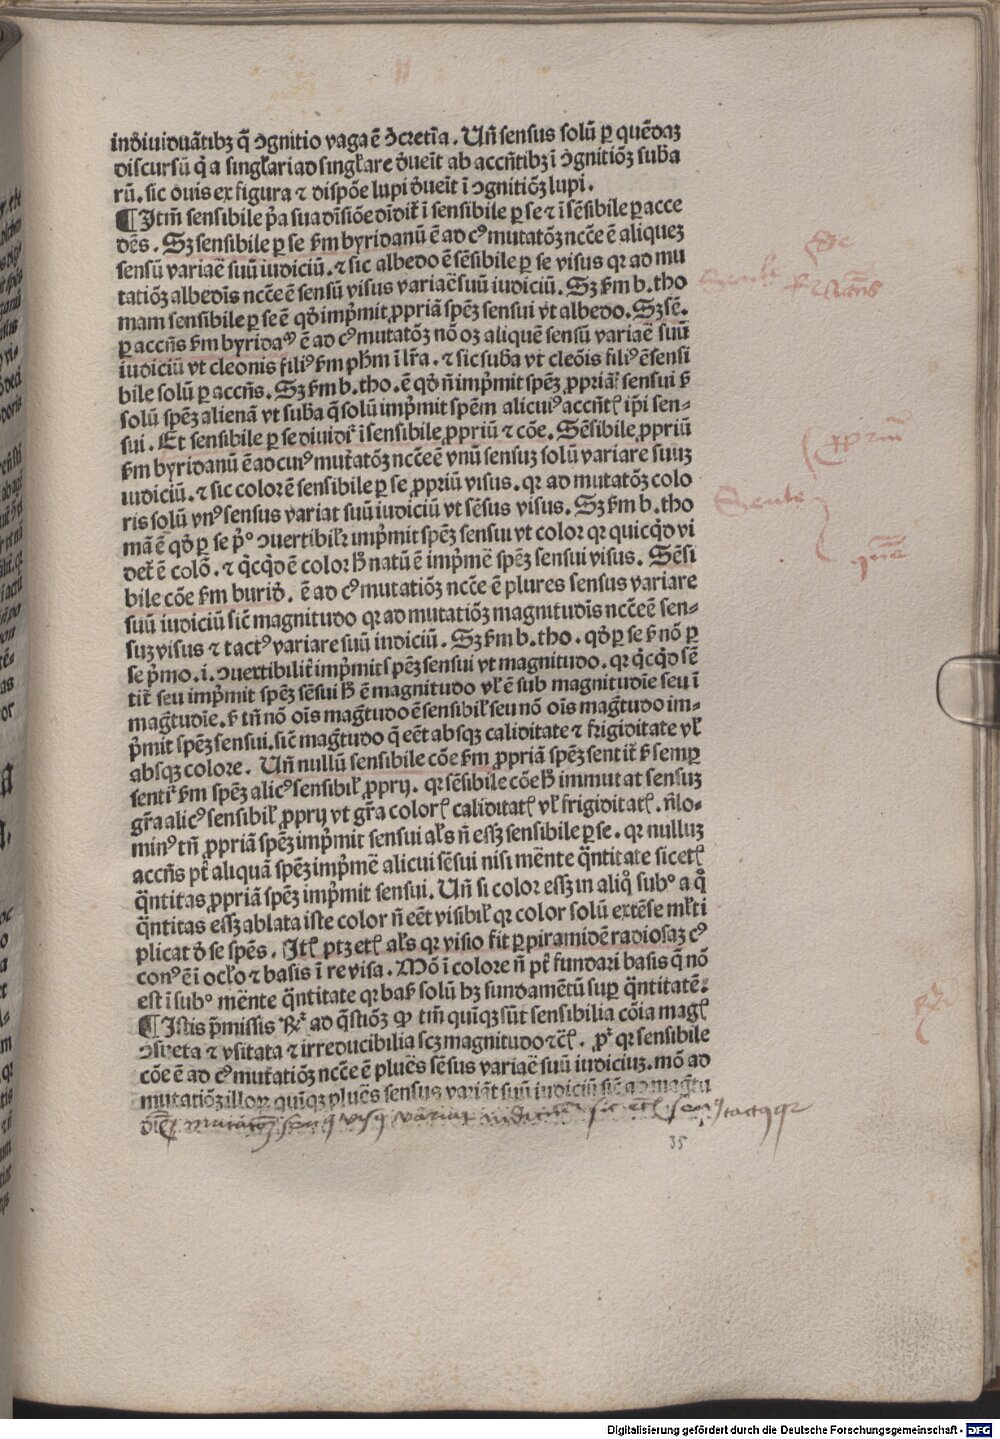 indiuiduãtibꝫ q̃ ꝯgnitio vaga ẽ ꝺ̃cretĩa. Vñ sensus solũ ꝑ quẽdaꝫ
discursũ q̃ a singƚari ad singƚare ꝺ̓ueĩt ab accñtibꝫ ĩ ꝯgnitiõꝫ suba
rũ. sic ouis ex figura ⁊ dispõe lupi ꝺ̓ueĩt ĩ ꝯgnitiõꝫ lupi.
¶ Itm̃ sensibile p̃a sua dĩsiõe dĩdit̃ ĩ sensibile ꝑ se ⁊ ĩ sẽsibile ꝑ acce
dẽs. Sꝫ sensibile ꝑ se ẜm byridanũ ẽ ad cꝰ mutatõꝫ ncc̃e ẽ aliqueꝫ
sensũ variaẽ suũ iudiciũ. ⁊ sic albedo ẽ sẽsibile ꝑ se visus qꝛ ad mu
tatiõꝫ albedĩs ncc̃e ẽ sensũ visus variaẽ suũ iudiciũ. Sꝫ ẜm b. tho
mam sensibile ꝑ se ẽ qd̓ imp̓mit ꝓpriã spẽꝫ sensui vt albedo. Sꝫ sẽ.
ꝑ accñs ẜm byridaꝰ ẽ ad cꝰ mutatõꝫ nõ oꝫ aliquẽ sensũ variaẽ suũ
iudiciũ vt cleonis filiꝰ ẜm ph̃m ĩ lr̃a. ⁊ sic suba vt cleõis filiꝰ ẽ sensi
bile solũ ꝑ accñs. Sꝫ ẜm b. tho. ẽ qd̓ ñ imp̓mit spẽꝫ ꝓpriã sensui ẜ
solũ spẽꝫ alienã vt suba q̃ solũ imp̓mit spẽm alicuiꝰ accñtꝭ ip̃i sen-
sui. Et sensibile ꝑ se diuidꝛ̃ ĩ sensibile ꝓpriũ ⁊ cõe. Sẽsibile ꝓpriũ
ẜm byridanũ ẽ ad cuiꝰ mut̃atõꝫ ncc̃e ẽ vnũ sensuꝫ solũ variare suuꝫ
iudiciũ. ⁊ sic color ẽ sensibile ꝑ se ꝓpriũ visus. qꝛ ad mutatõꝫ colo
ris solũ vnꝰ sensus variat suũ iudiciũ vt sẽsus visus. Sꝫ ẜm b. tho
mã ẽ qd̓ ꝑ se p̓° ꝯuertibilꝛ̃ imp̓mit spẽꝫ sensui vt color qꝛ quicq̃d vi
det̃ ẽ colõ. ⁊ q̃cq̃d ẽ color h̓ natũ ẽ imp̓mẽ spẽꝫ sensui visus. Sẽsi
bile cõe ẜm burid̓. ẽ ad cꝰ mutatiõꝫ ncc̃e ẽ plures sensus variare
suũ iudiciũ sic̃ magnitudo qꝛ ad mutatiõꝫ magnitudĩs ncc̃e ẽ sen-
suꝫ visus ⁊ tactꝰ variare suũ iudiciũ. Sꝫ ẜm b. tho. qd̓ ꝑ se ẜ nõ ꝑ
se p̓mo. i. ꝯuertibilit̃ imp̓mit spẽꝫ sensui vt magnitudo. qꝛ q̃cq̃d sẽ
tit̃ seu imp̓mit spẽꝫ sẽsui h̓ ẽ magnitudo vƚ ẽ sub magnitudĩe seu ĩ
mag̃tudĩe. ẜ tñ nõ oĩs mag̃tudo ẽ sensibiƚ seu nõ oĩs mag̃tudo im-
p̓mit spẽꝫ sensui. sic̃ mag̃tudo q̃ eẽt absqꝫ caliditate ⁊ frigiditate vƚ
absqꝫ colore. Vñ nullũ sensibile cõe ẜm ꝓpriã spẽꝫ sentit̃ ẜ semꝑ
sentiꝛ̃ ẜm spẽꝫ alicꝰ sensibiƚ ꝓprij. qꝛ sẽsibile cõe h̓ immutat sensuꝫ
gr̃a alicꝰ sensibiƚ ꝓprij vt gr̃a colorꝭ caliditatꝭ vƚ frigiditatꝭ. ñlo-
minꝰ tñ ꝓpriã spẽꝫ imp̓mit sensui aƚs ñ essꝫ sensibile ꝑ se. qꝛ nulluꝫ
accñs pt̃ aliquã spẽꝫ imp̓mẽ alicui sẽsui nisi mẽnte q̃ntitate sic etꝭ
q̃ntitas ꝓpriã spẽꝫ imp̓mit sensui. Vñ si color essꝫ in aliq̊ subº a q̊
q̃ntitas essꝫ ablata iste color ñ eẽt visibiƚ qꝛ color solũ extẽse mƚti
plicat ꝺ̓ se spẽs. Itꝭ ptꝫ etꝭ aƚs qꝛ visio fit ꝑ piramidẽ radiosaꝫ cꝰ
conꝰ ẽ ĩ ocƚo ⁊ basis ĩ re visa. Mõ ĩ colore ñ pt̃ fundari basis q̃ nõ
est ĩ subº mẽnte q̃ntitate qꝛ basꝭ solũ hꝫ fundamẽtũ suꝑ q̃ntitatẽ.
¶ Istis p̃missis Rꝛ̃ ad q̃stiõꝫ ꝙ tm̃ quĩqꝫ sũt sensibilia cõia magꝭ
ꝯsueta ⁊ vsitata ⁊ irreducibilia scꝫ magnitudo ⁊c̃ꝭ. pꝛ̃ qꝛ sensibile
cõe ẽ ad cꝰ mut̃atiõꝫ ncc̃e ẽ pluẽs sẽsus variaẽ suũ iudiciuꝫ. mõ ad
mutatiõꝫ illoꝝ quĩqꝫ pluẽs sensus variãt suũ iudiciũ sic̃ ad mag̃tu
35